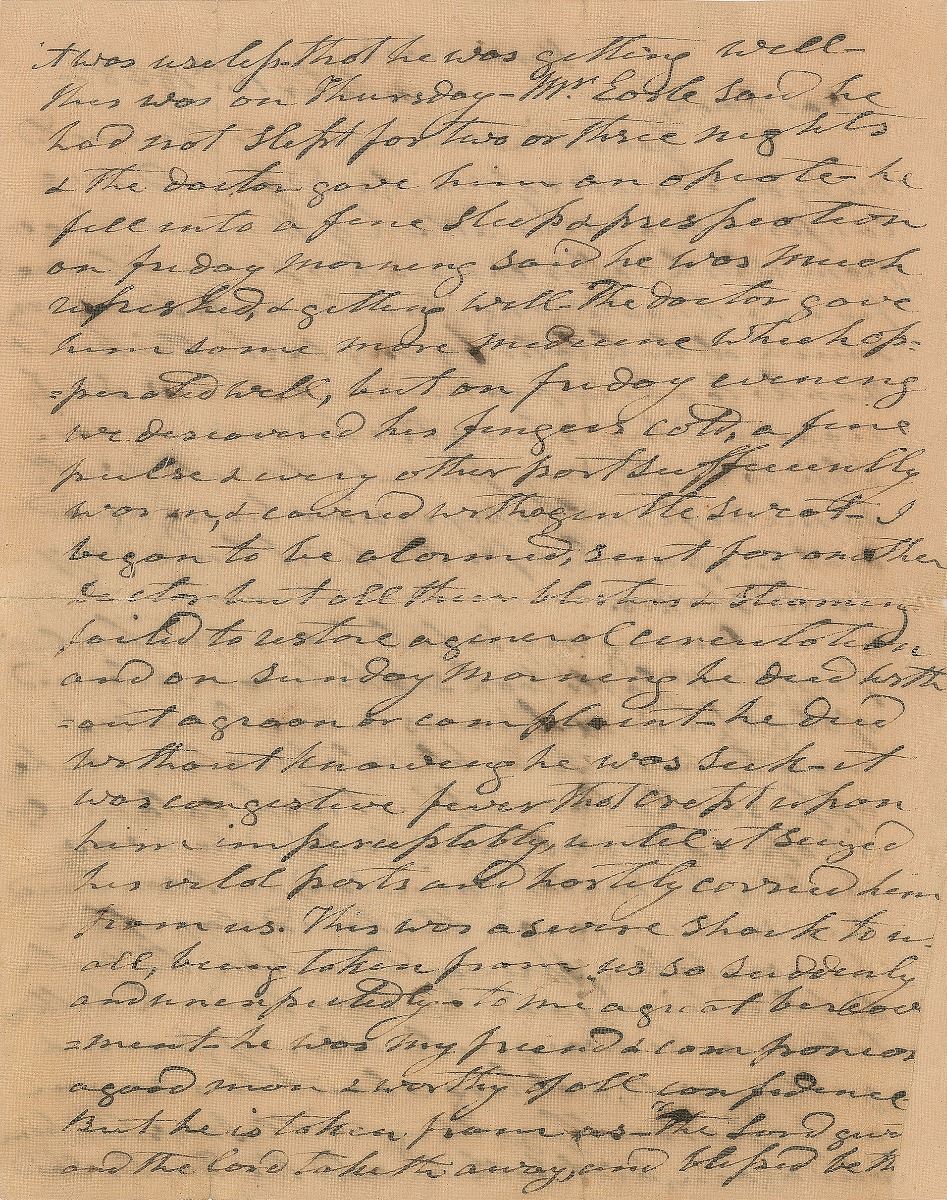 it was useless that he was getting well-
this was on Thursday - Mr. Eadle said he
had not slept for two or three nights
& the doctor gave him an opiate- he
fell into a fine sleep & prespeotion
on friday morning said he was much
refreshed, & getting well- The doctor gave
him some more medicine which op-
=perated well, but on friday evening
we discovered his fingers cold, a fine
pulse & every other part sufficiently
warm, & covered with a gentle sweat- I
began to be alarmed, sent for another
doctor but all their blisters & steaming
failed to restore a general circulation
and on Sunday morning he died with
=out a groan or complaint- he died
without knowing he was sick- it
was congestive fever that crept upon
him imperceptably, until it seized
his vital parts and hastily carried him
from us. This was a severe shock to u-
all, being taken from us so suddenly
and unexpectedly- to me a great bereav
=ment- he was my friend & companion
a good man & worthy of all confidence
But he is taken from us- "The Lord give
and the lord taketh away, and blessed be th